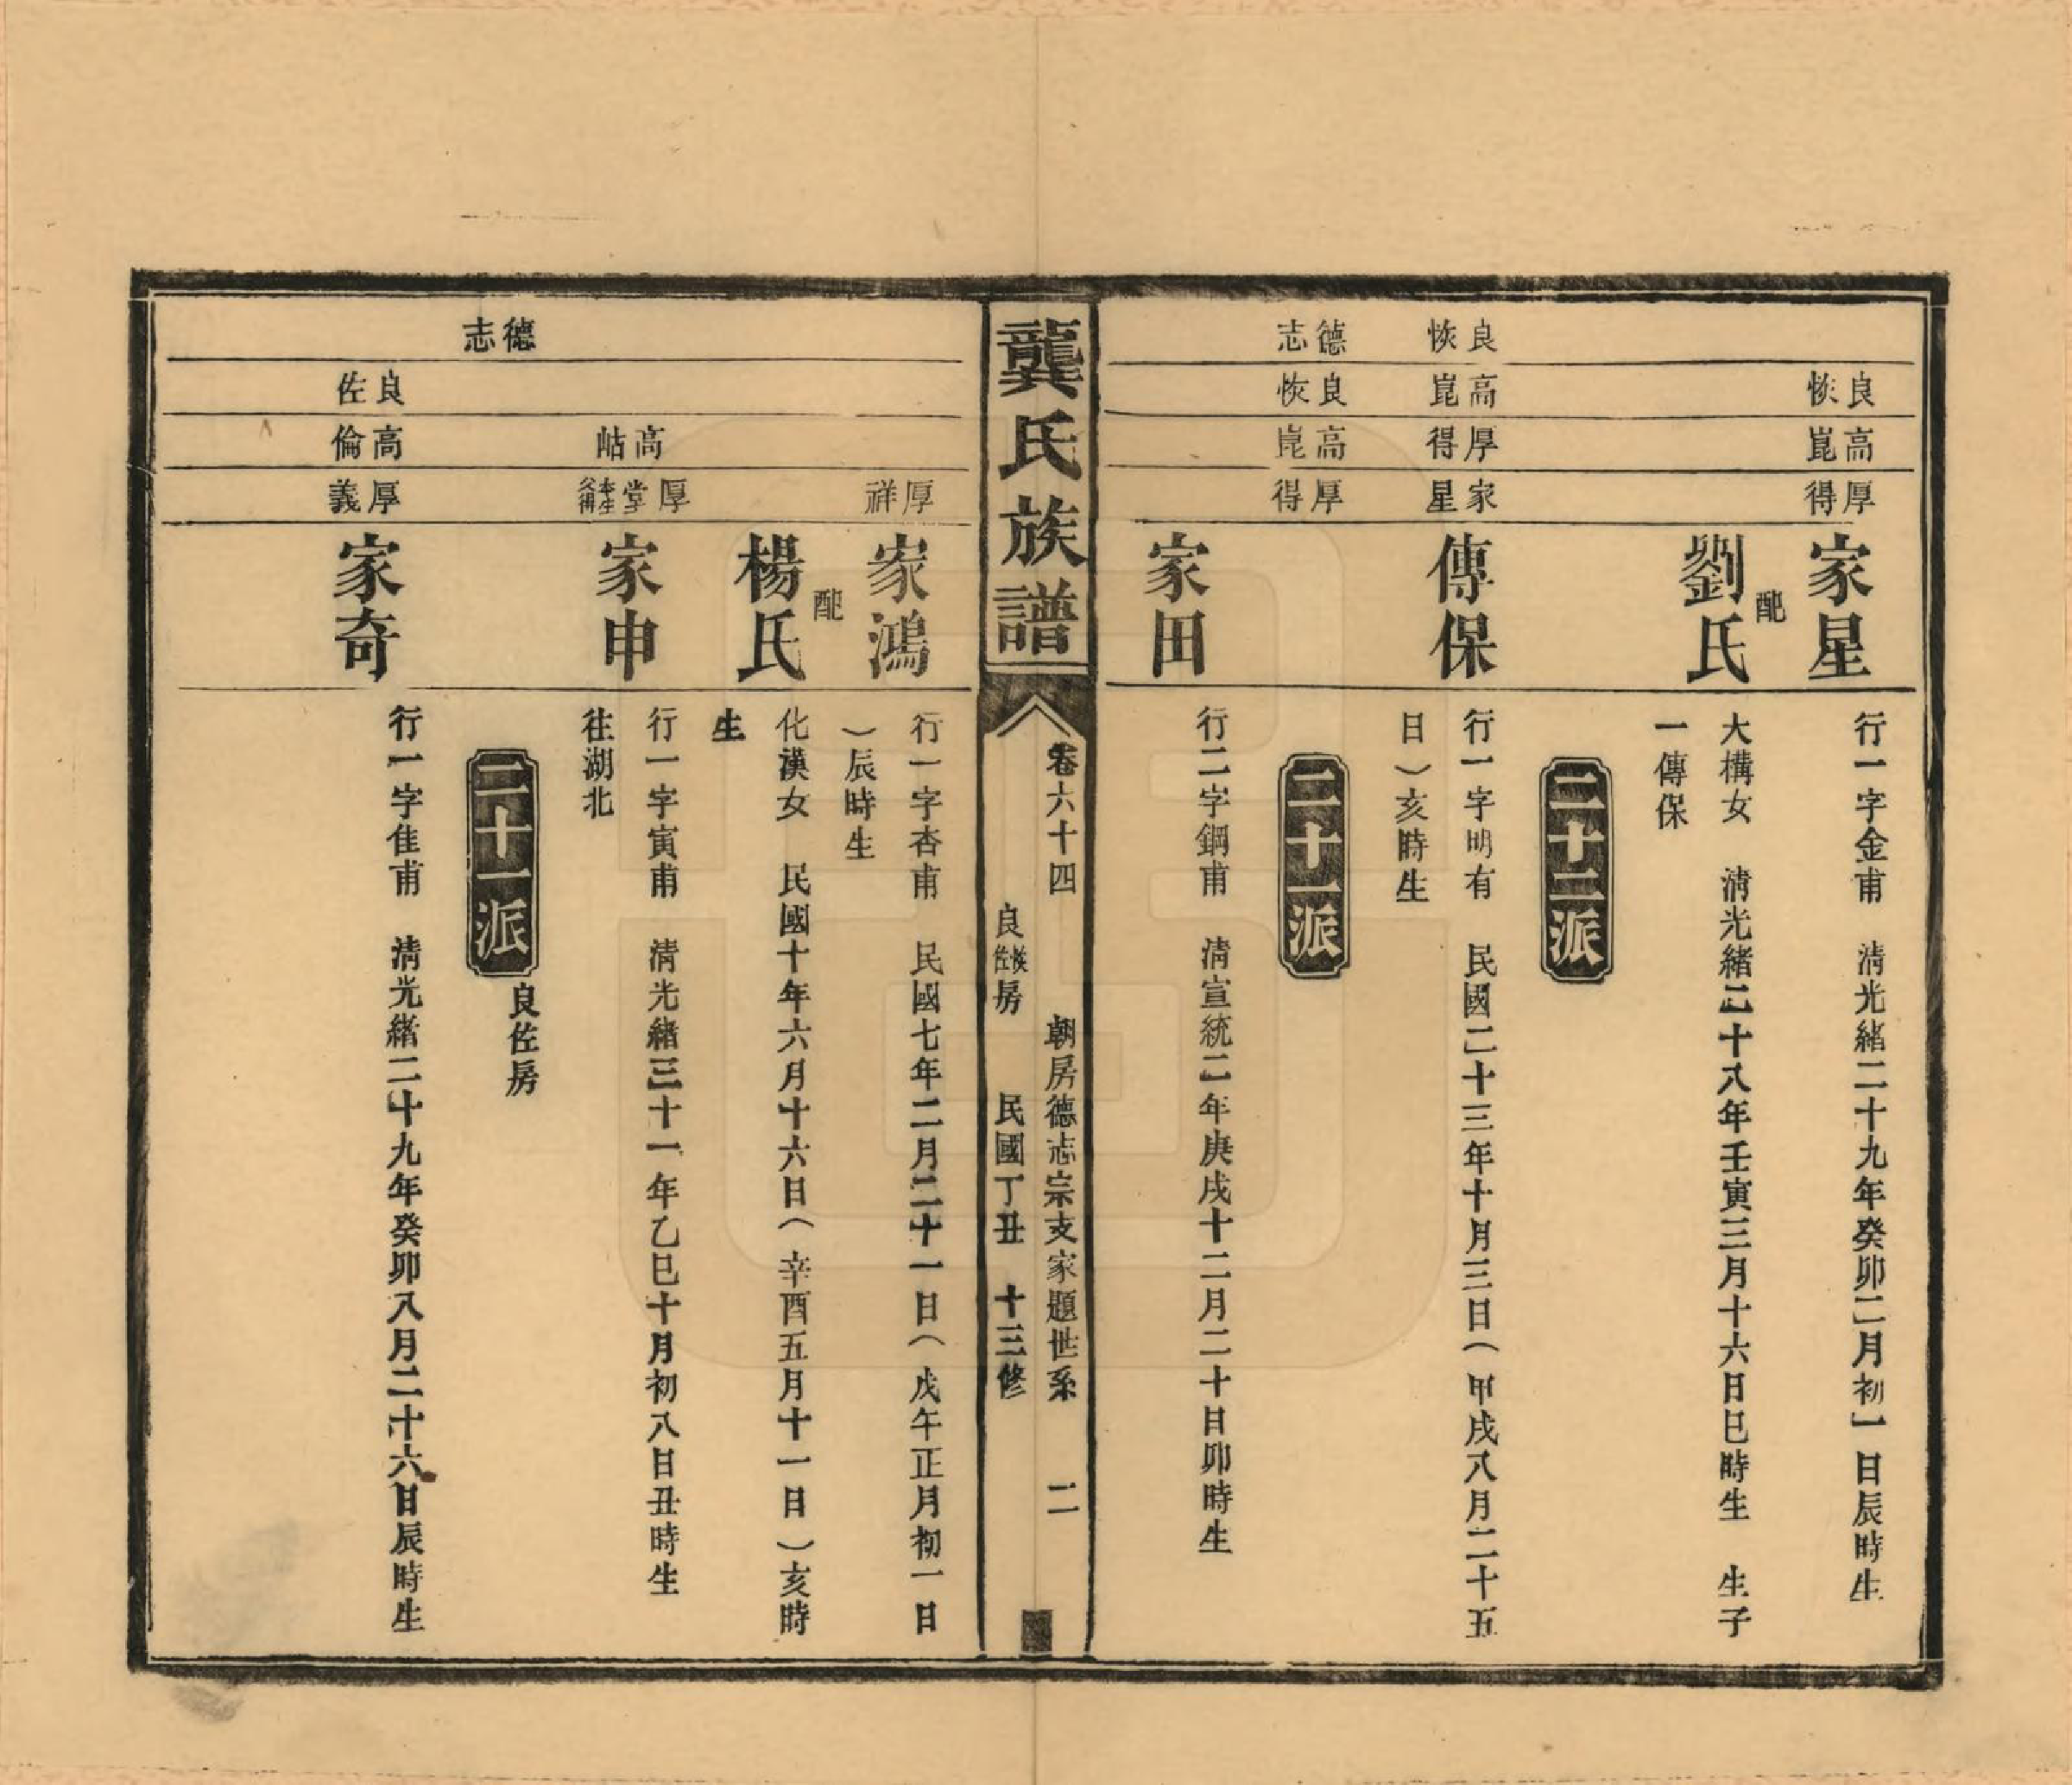 良恢
高崑
厚得
家星
行一字金甫　清光緒二十九年癸卯二月初一日辰時生
配
劉氏
大構女　清光緒二十八年壬寅三月十六日巳時生　生子
一傳保
二十二派
良恢
高崑
厚得
家星
傳保
行一字明有　民國二十三年十月三日（甲戌八月二十五
日）亥時生
二十一派
德志
良恢
高崑
厚得
家田
行二字鋼甫　清宣統二年庚戌十二月二十日卯時生
龔氏族譜
卷六十四　朝房德志宗支家題世系　二
良恢佐房　民國丁丑　十三修
厚祥
家鴻
行一字杏甫　民國七年二月二十一日（戊午正月初一日
）辰時生
配
楊氏
化漢女　民國十年六月十六日（辛酉五月十一日）亥時
生
高岵
厚堂本生父得
家申
行一字寅甫　清光緒三十一年乙巳十月初八日丑時生
往湖北
二十一派　良佐房
德志
良佐
高倫
厚義
家奇
行一字佳甫　清光緒二十九年癸卯八月二十六日辰時生